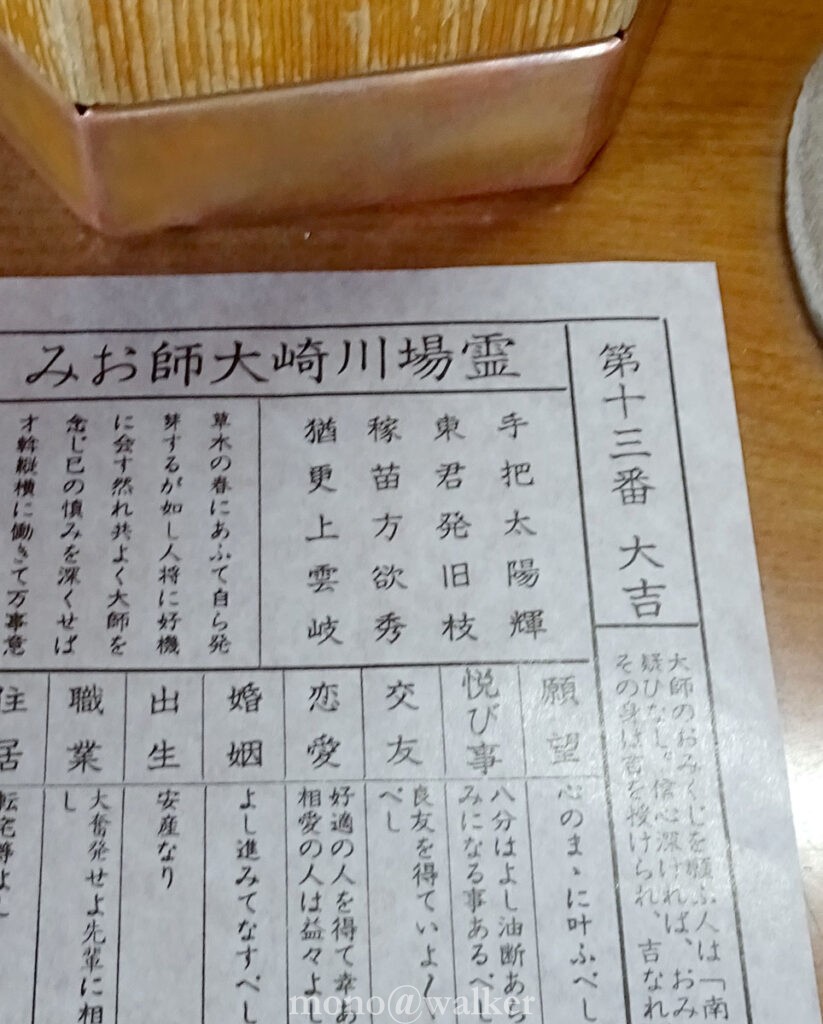 第十三番 大吉
大師のおみくじを願ふ人は「南
疑ひなし。信心深ければ、おみ
その身は吉を授けられ、吉なれ
霊場川崎大師おみ
手把太陽輝
東君発旧枝
稼苗方欲秀
猶更上雲岐
草木の春にあふて自ら発
芽するが如し人将に好機
に会す然れ共よく大師を
念じ已の慎みを深くせば
才幹縦横に働きて万事意
願望
心のまゝに叶ふべし
悦び事
八分はよし油断あら
みになる事あるべし
交友
良友を得ていよ〳〵
べし
恋愛
好適の人を得て幸あ
相愛の人は益々よし
婚姻
よし進みてなすべし
出生
安産なり
職業
大奮発せよ先輩に相
し
住居
転宅等よし
mono@walker